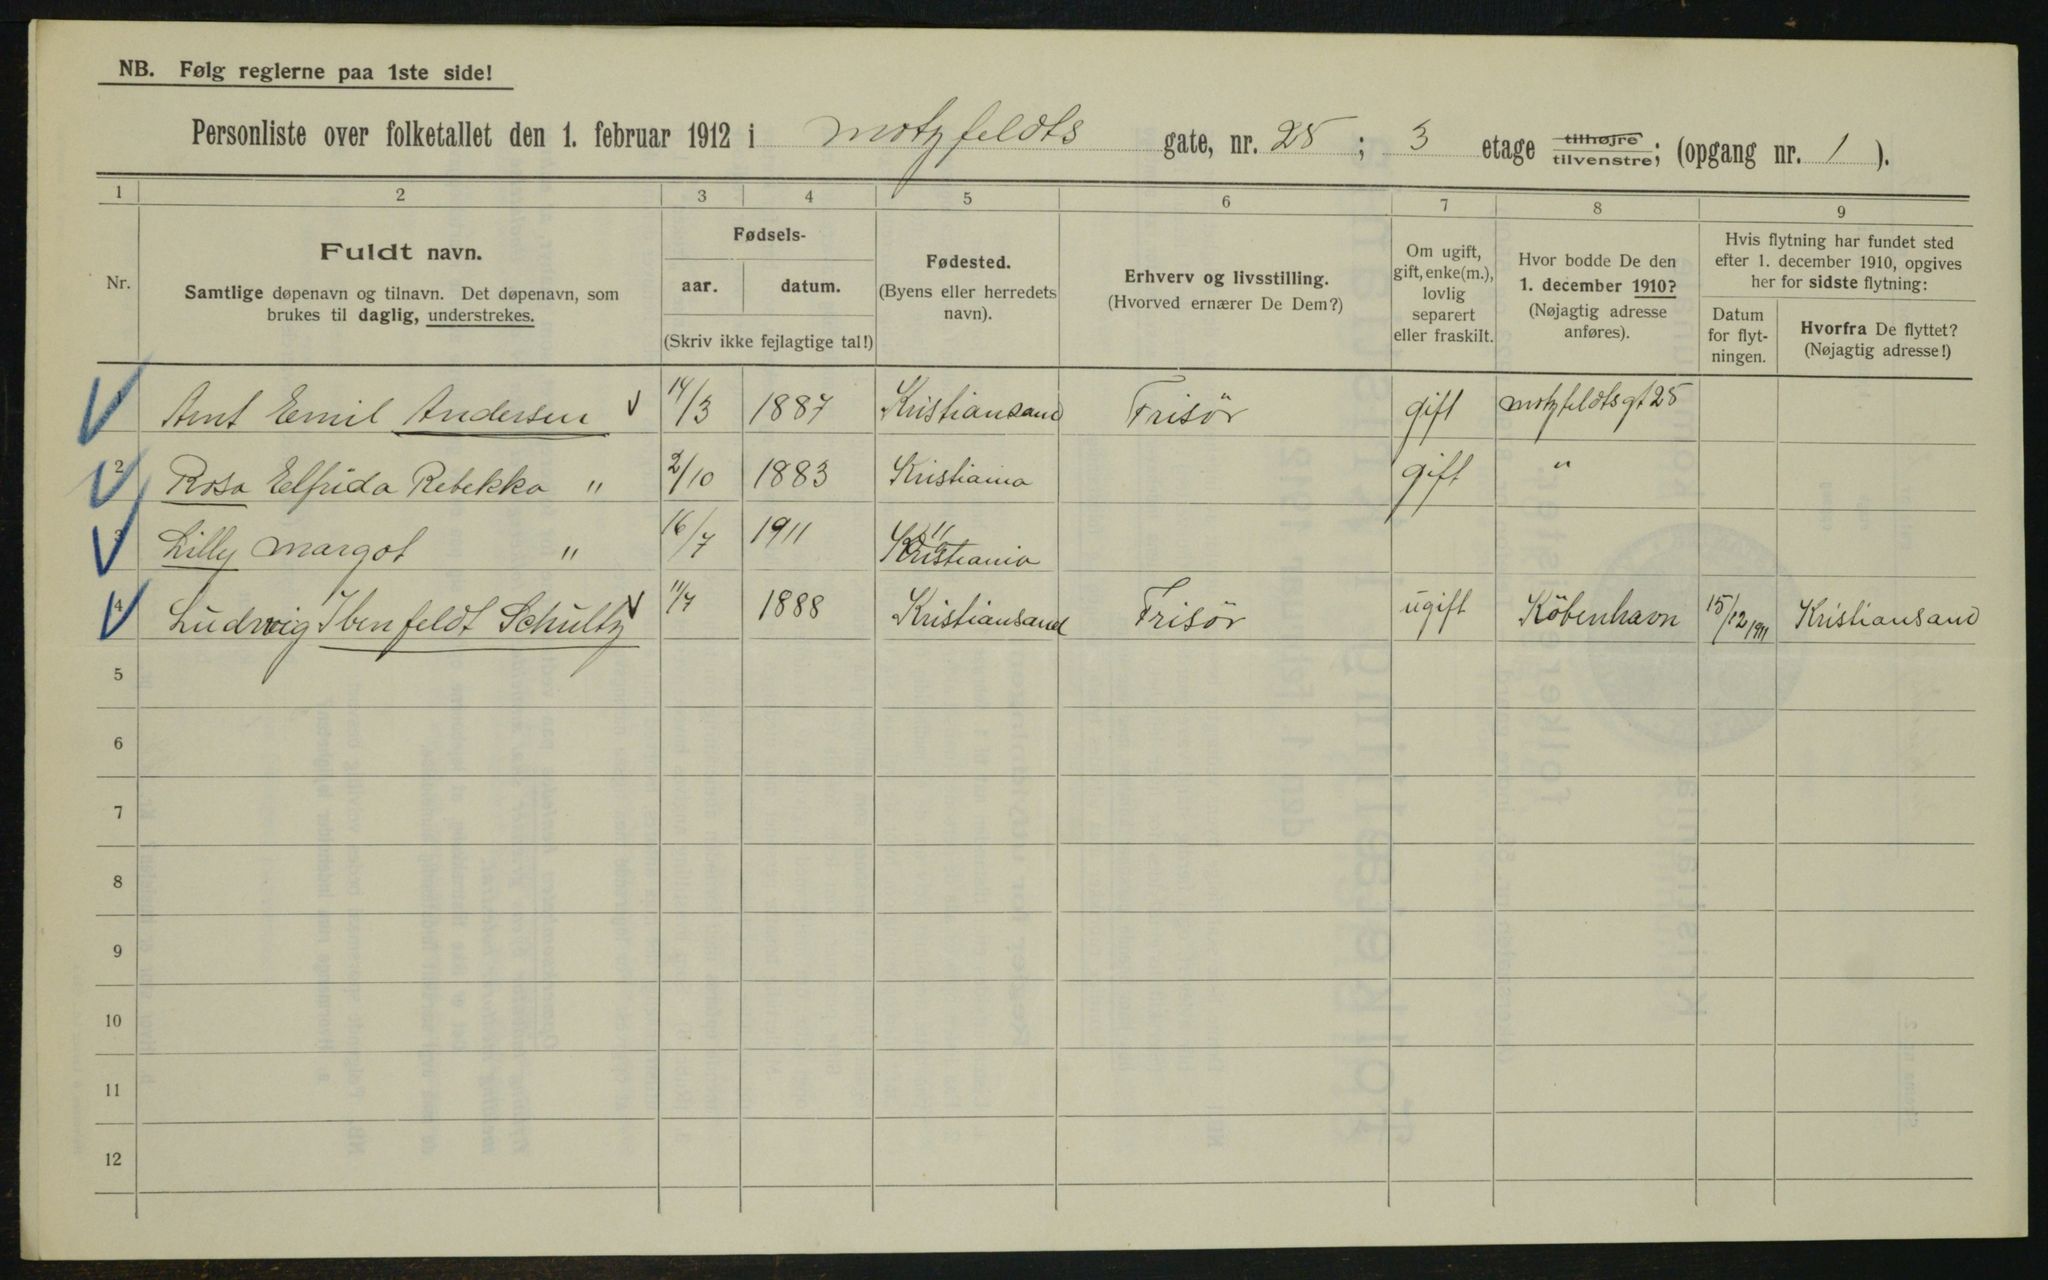 NB. Følg reglerne paa 1ste side!
Personliste over folketallet den 1. februar 1912 i Motzfeldts gate, nr. 25; 3 etage tilhøjre tilvenstre; (opgang nr. 1).
1 2 3 4 5 6 7 8 9
Nr.
Fuldt navn.
Samtlige døpenavn og tilnavn. Det døpenavn, som
brukes til daglig, understrekes.
Fødsels-
aar. datum.
(Skriv ikke fejlagtige tal!)
Fødested.
(Byens eller herredets
navn).
Erhverv og livsstilling.
(Hvorved ernærer De Dem?)
Om ugift,
gift, enke(m.),
lovlig
separert
eller fraskilt.
Hvor bodde De den
1. december 1910?
(Nøjagtig adresse
anføres).
Hvis flytning har fundet sted
efter 1. december 1910, opgives
her for sidste flytning:
Datum
for flyt-
ningen.
Hvorfra De flyttet?
(Nøjagtig adresse!)
Arnt Emil Andersen 14/3 1887 Kristiansand Frisör gift Motzfeldtsgt 25
2 Rosa Elfrida Rebekka " 2/10 1883 Kristiania gift "
3 Lilly Margot " 16/7 1911 Kristiania
4 Ludwig Ibenfeldt Schultz 11/7 1888 Kristiansand Frisör ugift Köbenhavn 15/12 1911 Kristiansand
5
6
7
8
9
10
11
12